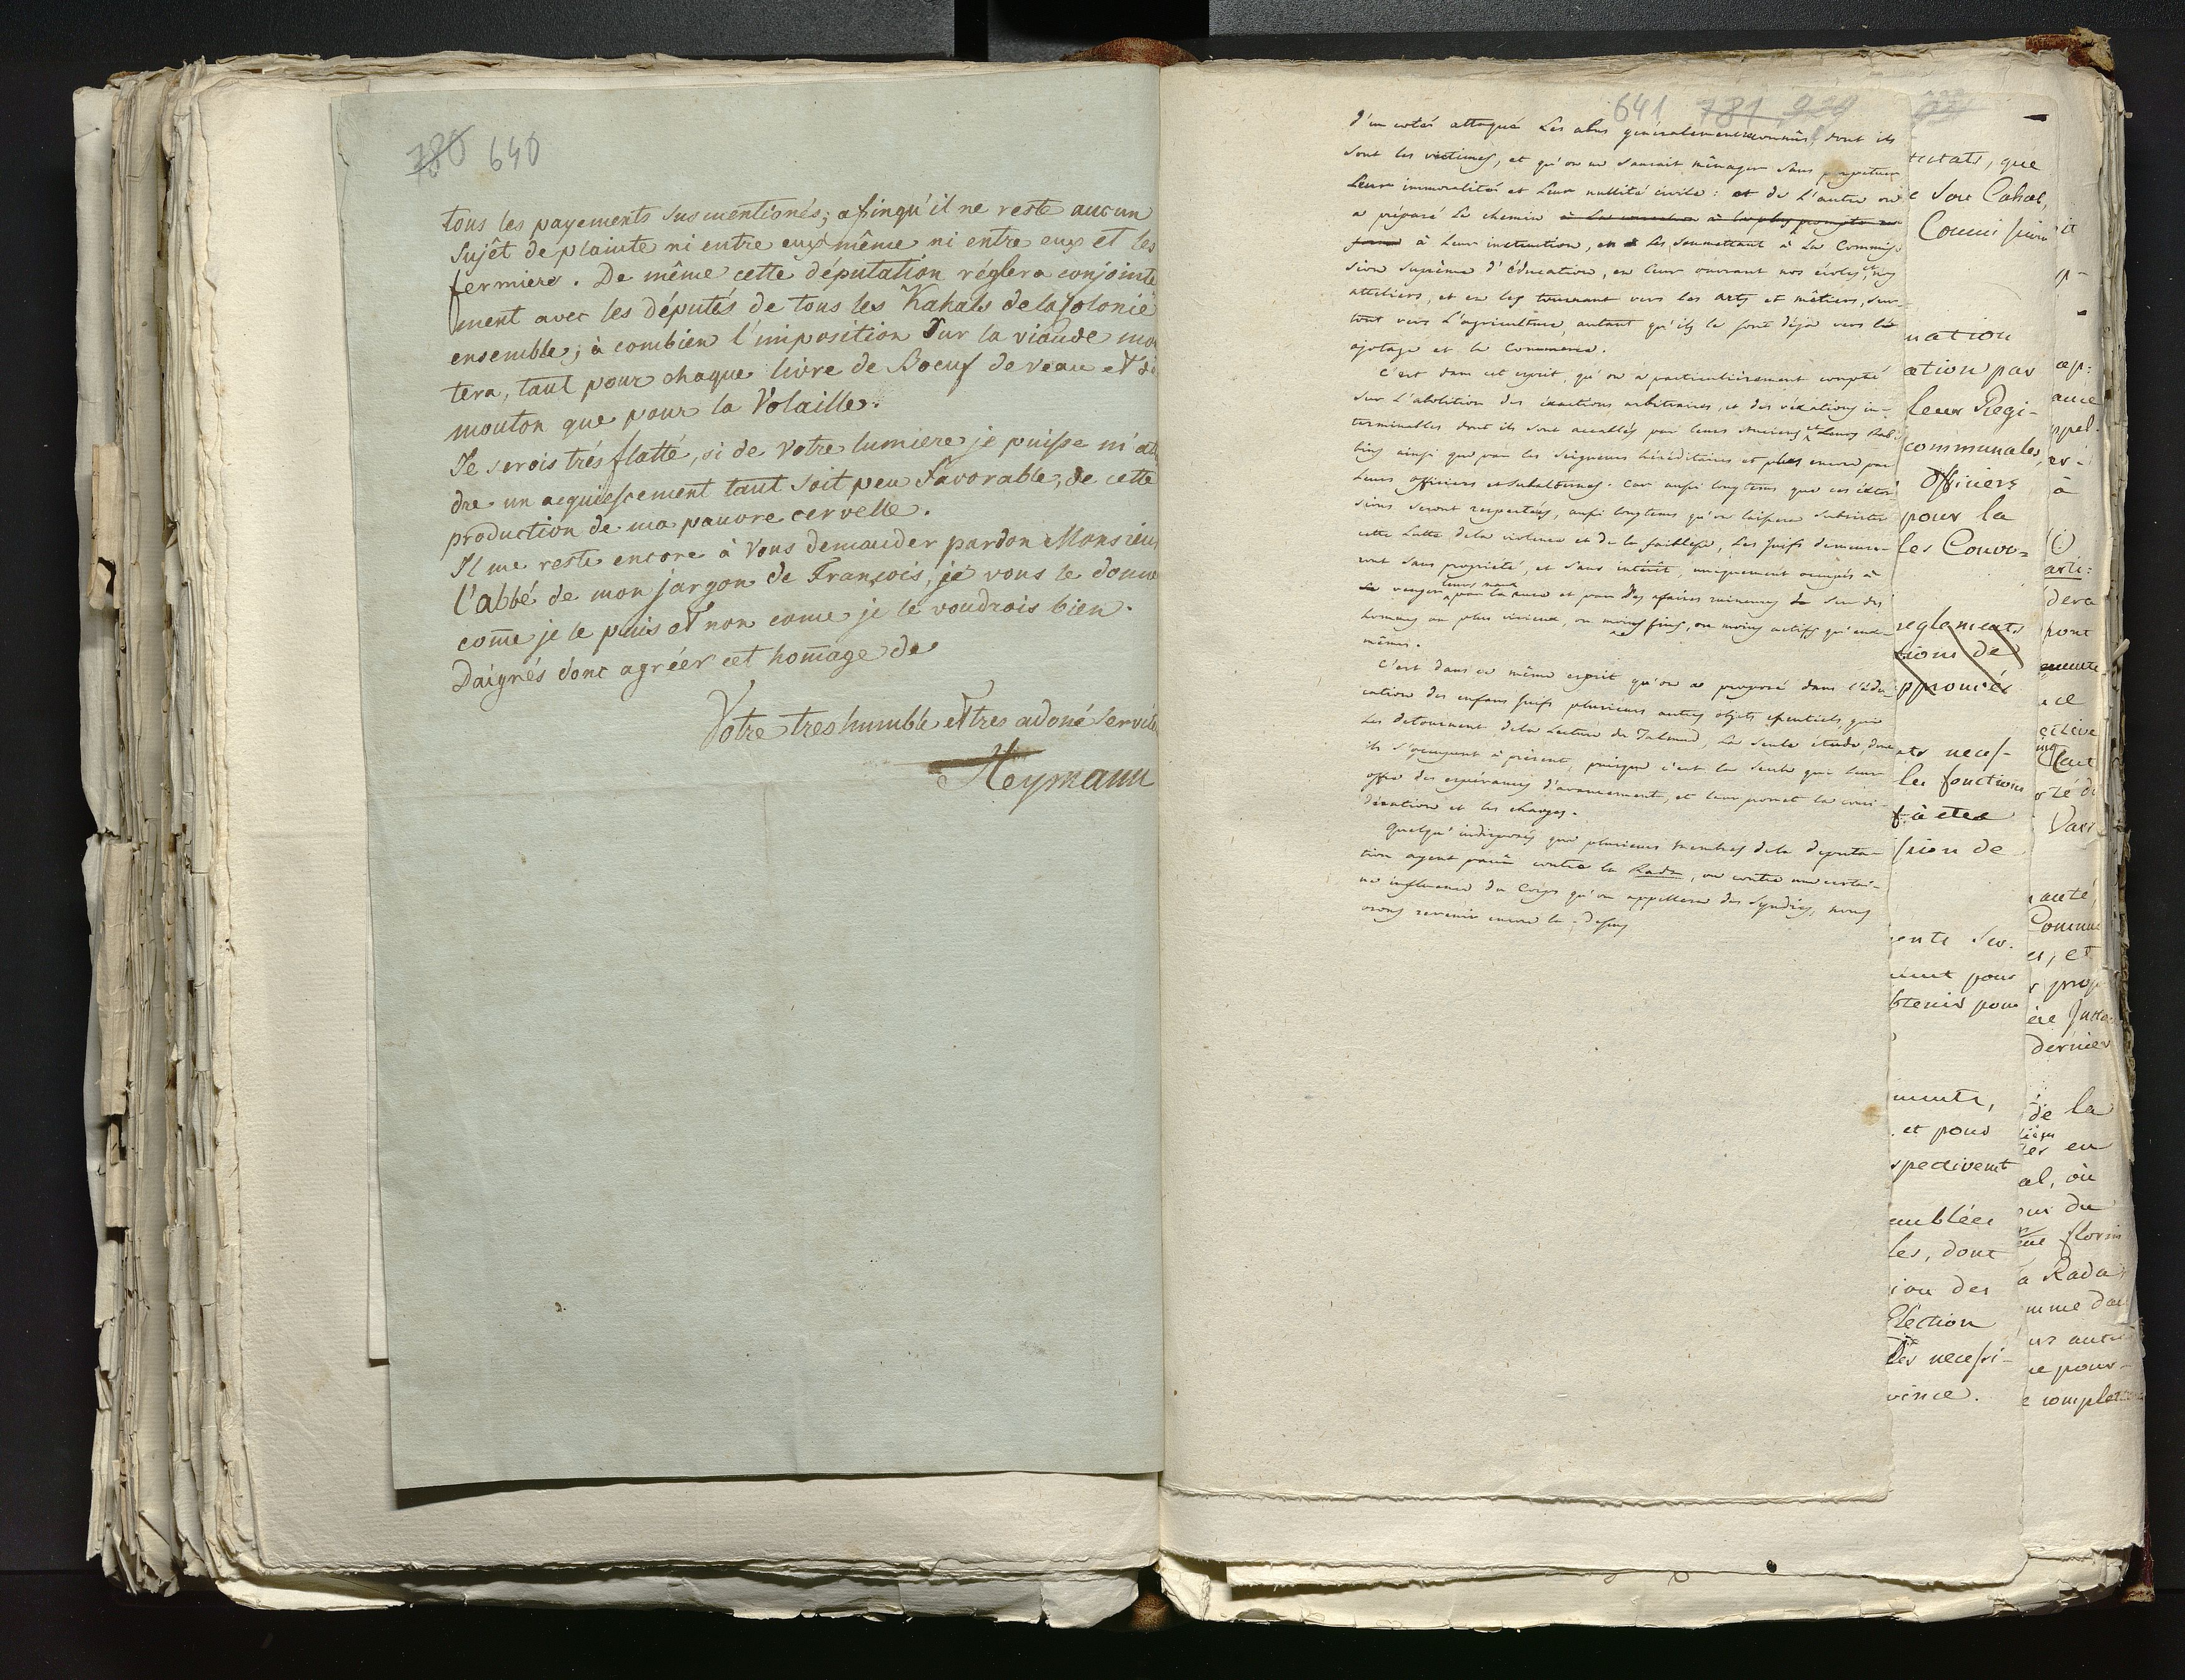 780 640
tous les payements susmentionés; afinqu'il ne reste aucun
sujêt de plainte ni entre eux même ni entre eux et les
fermiers. De même cette députation réglera conjointe
ment avec les députés de tous les Kahals de la Colonie
ensemble; à combien l'imposition sur la viande mon
tera, tant pour chaque livre de Boeuf de veau et de
mouton que pour la Volaille.
Je serois trés flatté, si de Votre lumiere je puisse m'att
dre un acquiessement tant soit peu favorable, de cette
production de ma pauvre cervelle.
Il me reste encore à Vous demander pardon Monsieur
l'abbé de mon jargon de François, je vous le donne
come je le puis et non come je le voudrois bien.
Daignés donc agréer cet homage de
Votre tres humble et tres adoné servite
Heymann
641 781
d'un coté attaqué les abus généralement connus, dont ils
sont les victimes, et qu'on ne saurait ménager sans perpetuer
leur immoralité et leur nullité civile: et de l'autre on
a préparé le chemin à la plus prompte
à leur instruction, en les soumettant à la Commis-
sion suprême d'éducation, en leur ouvrant nos écoles, et nos
atteliers, et en les tournant vers les arts et métiers, sur-
tout vers l'agriculture, autant qu'ils le sont déja vers l'a
ajotage et le commerce.
C'est dans cet esprit, qu'on a particulièrement compté
sur l'abolition des exactions arbitraires, et des véxations in-
terminables dont ils sont accablés par leurs Anciens et leurs Rab-
bins ainsi que par les seigneurs héréditaires et plus encore par
leurs officiers et subalternes. Car aussi longtems que ces extor
sions seront respectées, aussi longtems qu'on laissera subsister
cette lutte de la violence et de la faiblesse, les juifs demeure-
ront sans propriété, et sans intérêt, uniquement occupés à
se venger par la ruse et par des afaires ruineuses sur des
hommes ou plus vicieux, ou moins fins, ou moins actifs qu'eux-
mêmes.
C'est dans ce même esprit qu'on a proposé dans l'édu-
cation des enfans juifs plusieurs autres objets essentiels, qui
les detournent de la lecture du Talmud, la seule étude, dont
ils s'occupent à présent, puisque c'est la seule qui leur
offre des espérances d'avancement, et leur promet la consi-
dération et les charges.
Quelqu'indisposés que plusieurs membres de la deputa-
tion ayent parû contre la Rada, ou contre une certai-
ne influence du Corps qu'on appellera des Syndics, nous
osons revenir encore la-dessus
ctats, que
Cahal,
nation
ation par
leur Regi-
communales,
Officiers
pour la
les Couvo-
reglements
tions de
pprouvés
ets neces-
les fonctions
f à etes
sion de
ment pour
btenir pour
ments,
. et pour
spectivemt
emblées
les, dont
ion des
Election
Des necessi-
vince.
it
p-
ap:
ance
ppel.
er-
à
(:)
arti:
dera
sont
emente
ce
auté,
Commu
es, et
prop
ère Juda
dernier
de la
les en
al, où
florin
a Rada
mme dan
us autre
ce pour-
complet